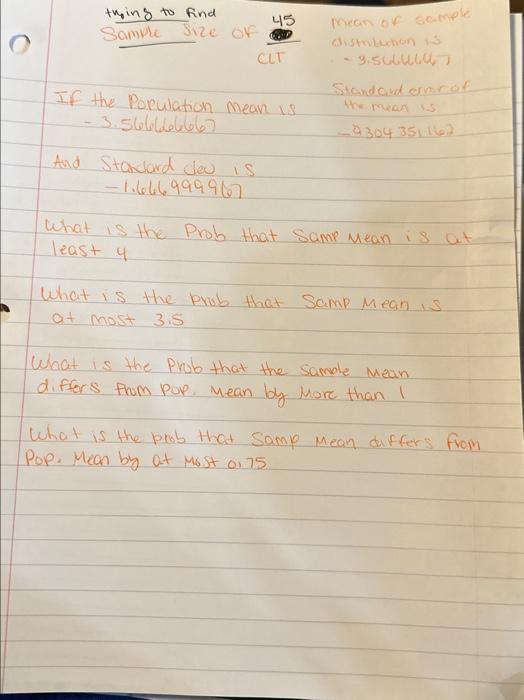 trying to find
Sample Size of 45
CLT
mean of sample
distribution is
- 3.566666667
Standard error of
the mean is
If the Population mean is
- 3.566666667
And Standard dev is
What is the Prob that Samp Mean is at
least 4
What is the prob that Samp Mean is
at most 3.5
What is the Prob that the Sample Mean
differs from pop. Mean by More than 1
What is the prob that Samp Mean differs from
Pop. Mean by at Most 0.75